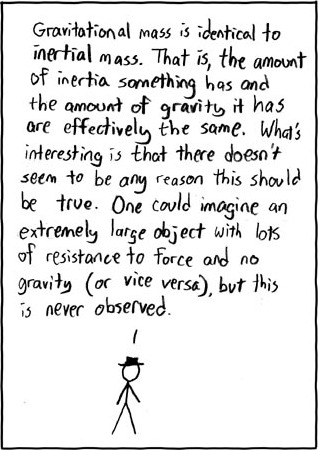 Gravitational mass is identical to
inertial mass. That is, the amount
of inertia something has and
the amount of gravity it has
are effectively the same. What's
interesting is that there doesn't
seem to be any reason this should
be true. One could imagine an
extremely large object with lots
of resistance to force and no
gravity (or vice versa), but this
is never observed.